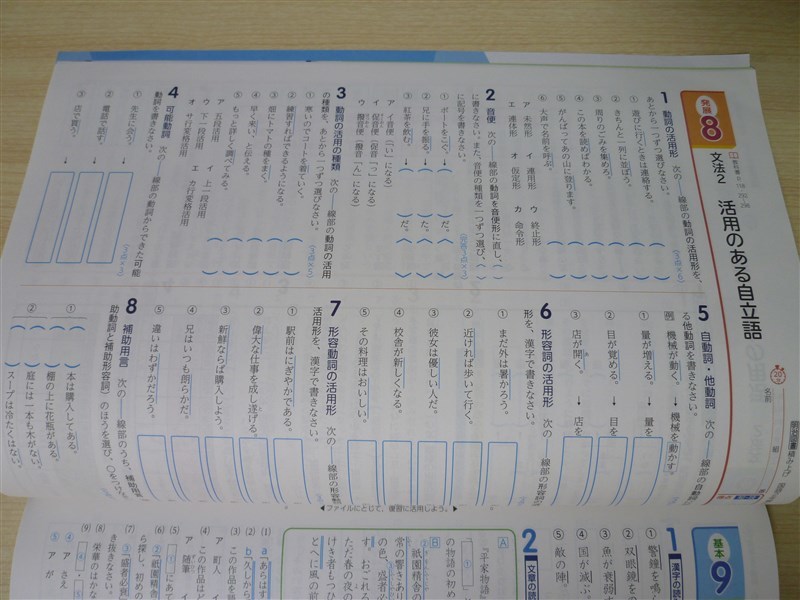 発展
8
文法2
活用のある自立語
20分
名前
組
1 動詞の活用形 次の――線部の動詞の活用形を、
あとから一つずつ選びなさい。
① 遊びに行くときは連絡する。
② きちんと一列に並ぼう。
③ 周りのごみを集めろ。
④ この本を読めばわかる。
⑤ がんばってあの山に登ります。
⑥ 大声で名前を呼ぶ。
ア 未然形 イ 連用形 ウ 終止形
エ 連体形 オ 仮定形 カ 命令形
2 音便 次の――線部の動詞を音便形に直し、( )
に書きなさい。また、音便の種類を一つずつ選び、〈 〉
に記号を書きなさい。
① ボートをこぐ。
② 兄に手を振る。 た。
③ 紅茶を飲む。 だ。
ア イ音便(「い」になる)
イ 促音便(促音「っ」になる)
ウ 撥音便(撥音「ん」になる)
3 動詞の活用の種類 次の――線部の動詞の活用
の種類を、あとから一つずつ選びなさい。
① 寒いのでコートを着ていく。
② 練習すればできるようになる。
③ 畑にトマトの種をまく。
④ 早く来い、と伝える。
⑤ もっと詳しく調べてみる。
ア 五段活用 イ 上一段活用
ウ 下一段活用 エ カ行変格活用
オ サ行変格活用
4 可能動詞 次の――線部の動詞からできた可能
動詞を書きなさい。
① 先生に会う。 →
② 電話で話す。 →
③ 店で買う。 →
5 自動詞・他動詞 次の――線部の自動詞
る他動詞を書きなさい。
例 機械が動く。 → 機械を動かす。
① 量が増える。 → 量を
② 目が覚める。 → 目を
③ 店が開く。 → 店を
6 形容詞の活用形 次の――線部の形容詞
形を、漢字で書きなさい。
① まだ外は暑かろう。
② 近ければ歩いて行く。
③ 彼女は優しい人だ。
④ 校舎が新しくなる。
⑤ その料理はおいしい。
7 形容動詞の活用形 次の――線部の形容動
活用形を、漢字で書きなさい。
① 駅前はにぎやかである。
② 偉大な仕事を成し遂げる。
③ 新鮮ならば購入しよう。
④ 兄はいつも朗らかだ。
⑤ 違いはわずかだろう。
8 補助用言 次の――線部のうち、補助用
助動詞と補助形容詞)のほうを選び、○をつけ
① 本は購入してある。
棚の上に花瓶がある。
② 庭には一本も木がない。
スープは冷たくはない。
◀ファイルにとじて、復習に活用しよう。▶
基本
9
1 漢字の読
① 警鐘を鳴
② 双眼鏡を
③ 魚が衰弱す
④ 国が滅ぶ。
⑤ 敵の陣。
2 文章の読
A
『平家物語』
の物語の初め
B
祇園精舎の
常の響きあり
の色、盛者必
す。おごれる
ただ春の夜の
けき者もつひ
とへに風の前
(1) a「あらはす
b「久しから
(2) この作品を
ア 町人 イ
(3)
(4) この作品は
ア 随筆 イ
(5) ① にあ
(6) ②「祇園精舎
ら探し、初めの
(7) ③「盛者必衰
き抜きなさい。
(8) 栄華のはかな
(9) ④ ・ ⑤
④ ア さえ
⑤ ア が